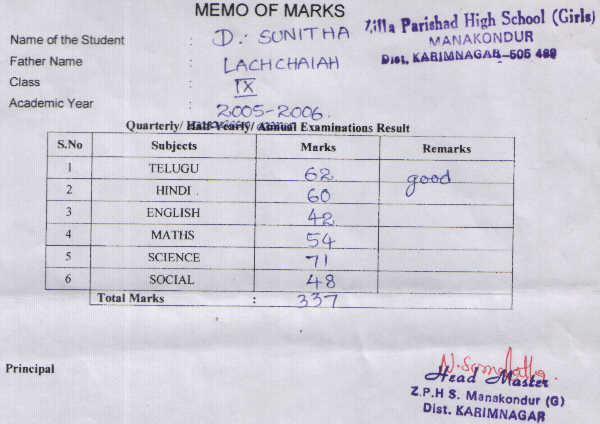 MEMO OF MARKS
Zilla Parishad High School (Girls)
MANAKONDUR
Dist. KARIMNAGAR-505 469
Name of the Student : D. SUNITHA
Father Name : LACHCHAIAH
Class : IX
Academic Year : 2005-2006.
Quarterly/ Half-Yearly/ Annual Examinations Result
S.No Subjects Marks Remarks
1 TELUGU 62 good
2 HINDI 60
3 ENGLISH 42
4 MATHS 54
5 SCIENCE 71
6 SOCIAL 48
Total Marks : 337
Principal
Head Master
Z.P.H S. Manakondur (G)
Dist. KARIMNAGAR